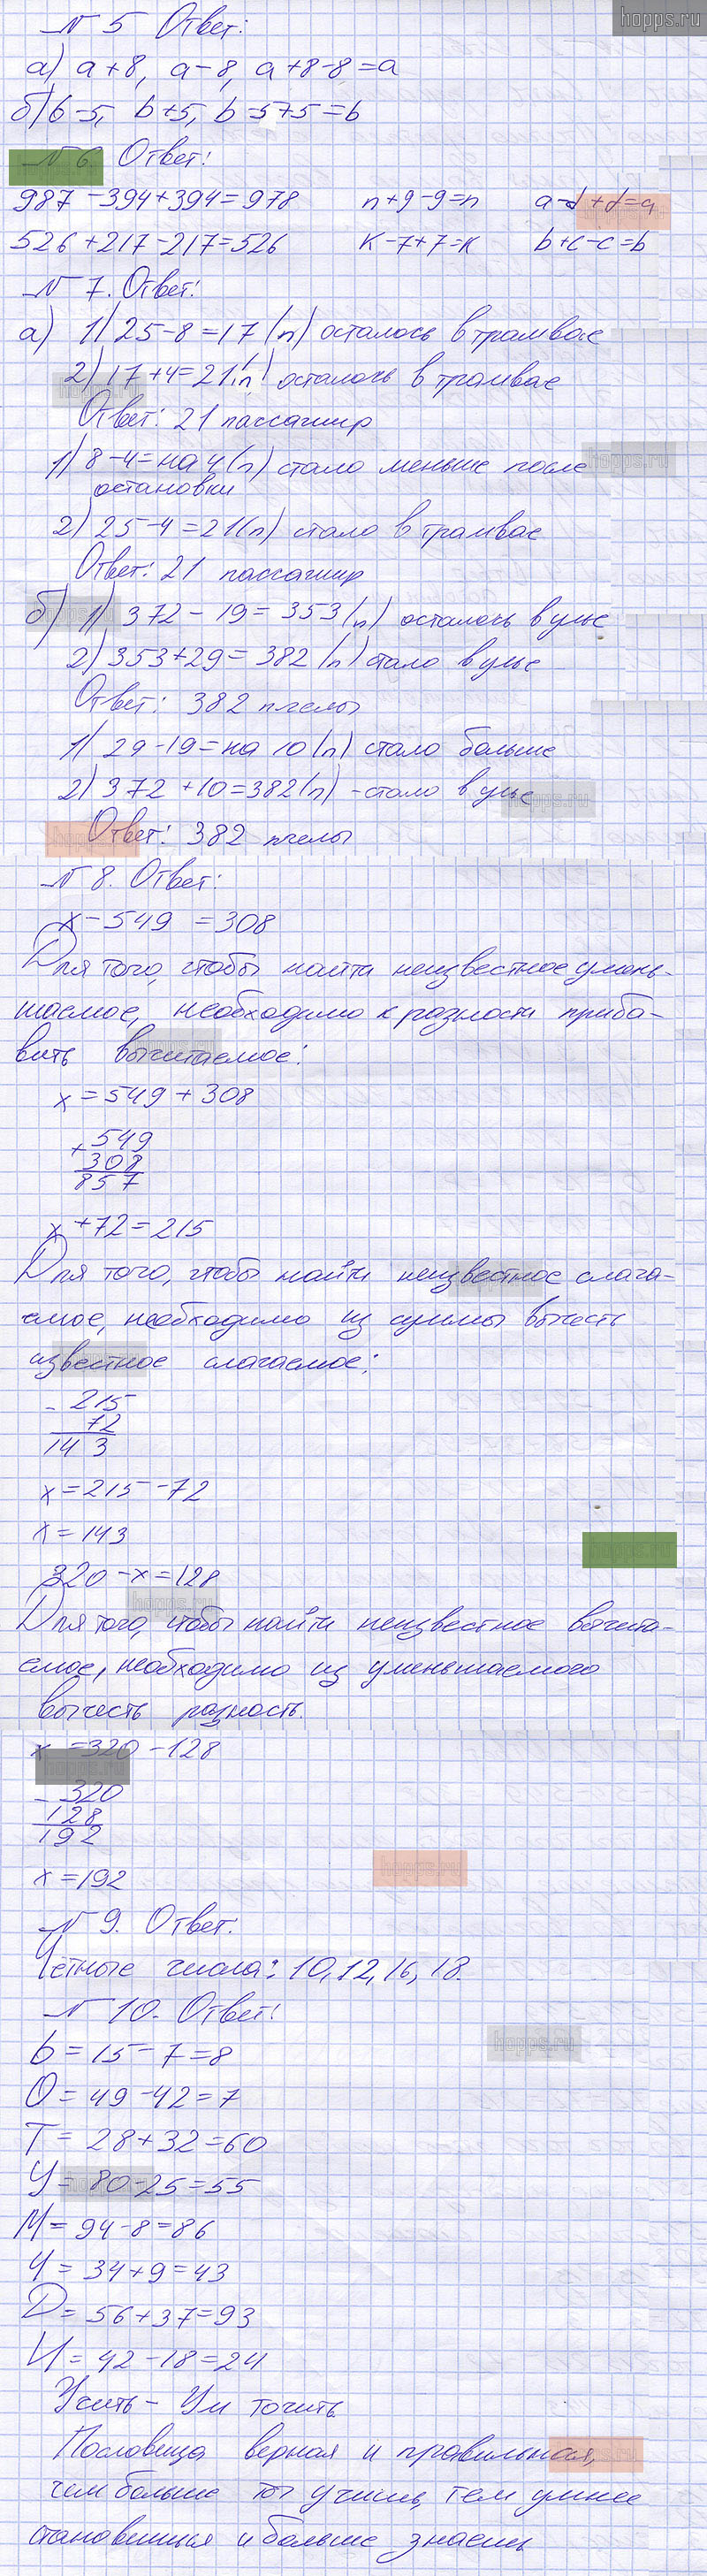 hopps.ru
№ 5 Ответ:
а) a+8, a-8, a+8-8=a
б) b-5, b+5, b-5+5=b
№ 6. Ответ:
987-394+394=978 n+9-9=n a-d+d=a
526+217-217=526 к-7+7=к b+c-c=b
№ 7. Ответ:
а) 1) 25-8=17(п) осталось в трамвае
2) 17+4=21(п) осталось в трамвае
Ответ: 21 пассажир
1) 8-4=на 4(п) стало меньше после
остановки
2) 25-4=21(п) стало в трамвае
Ответ: 21 пассажир
б) 1) 372-19=353(п) осталось в улье
2) 353+29=382(п) стало в улье
Ответ: 382 пчелы
1) 29-19=на 10(п) стало больше
2) 372+10=382(п) - стало в улье
Ответ: 382 пчелы
№ 8. Ответ:
x-549=308
Для того, чтобы найти неизвестное умень-
шаемое, необходимо к разности приба-
вить вычитаемое:
x=549+308
+549
308
857
x+72=215
Для того, чтобы найти неизвестное слага-
емое, необходимо из суммы вычесть
известное слагаемое:
-215
72
143
x=215-72
x=143
320-x=128
Для того, чтобы найти неизвестное вычита-
емое, необходимо из уменьшаемого
вычесть разность.
x=320-128
-320
128
192
x=192
№ 9. Ответ.
Чётные числа: 10, 12, 16, 18.
№ 10. Ответ:
Ь=15-7=8
О=49-42=7
Т=28+32=60
У=80-25=55
М=94-8=86
Ч=34+9=43
D=56+37=93
И=42-18=24
Ум точить.
Пословица верная и правильная,
чем больше ты учишь, тем умнее
становишься и больше знаешь